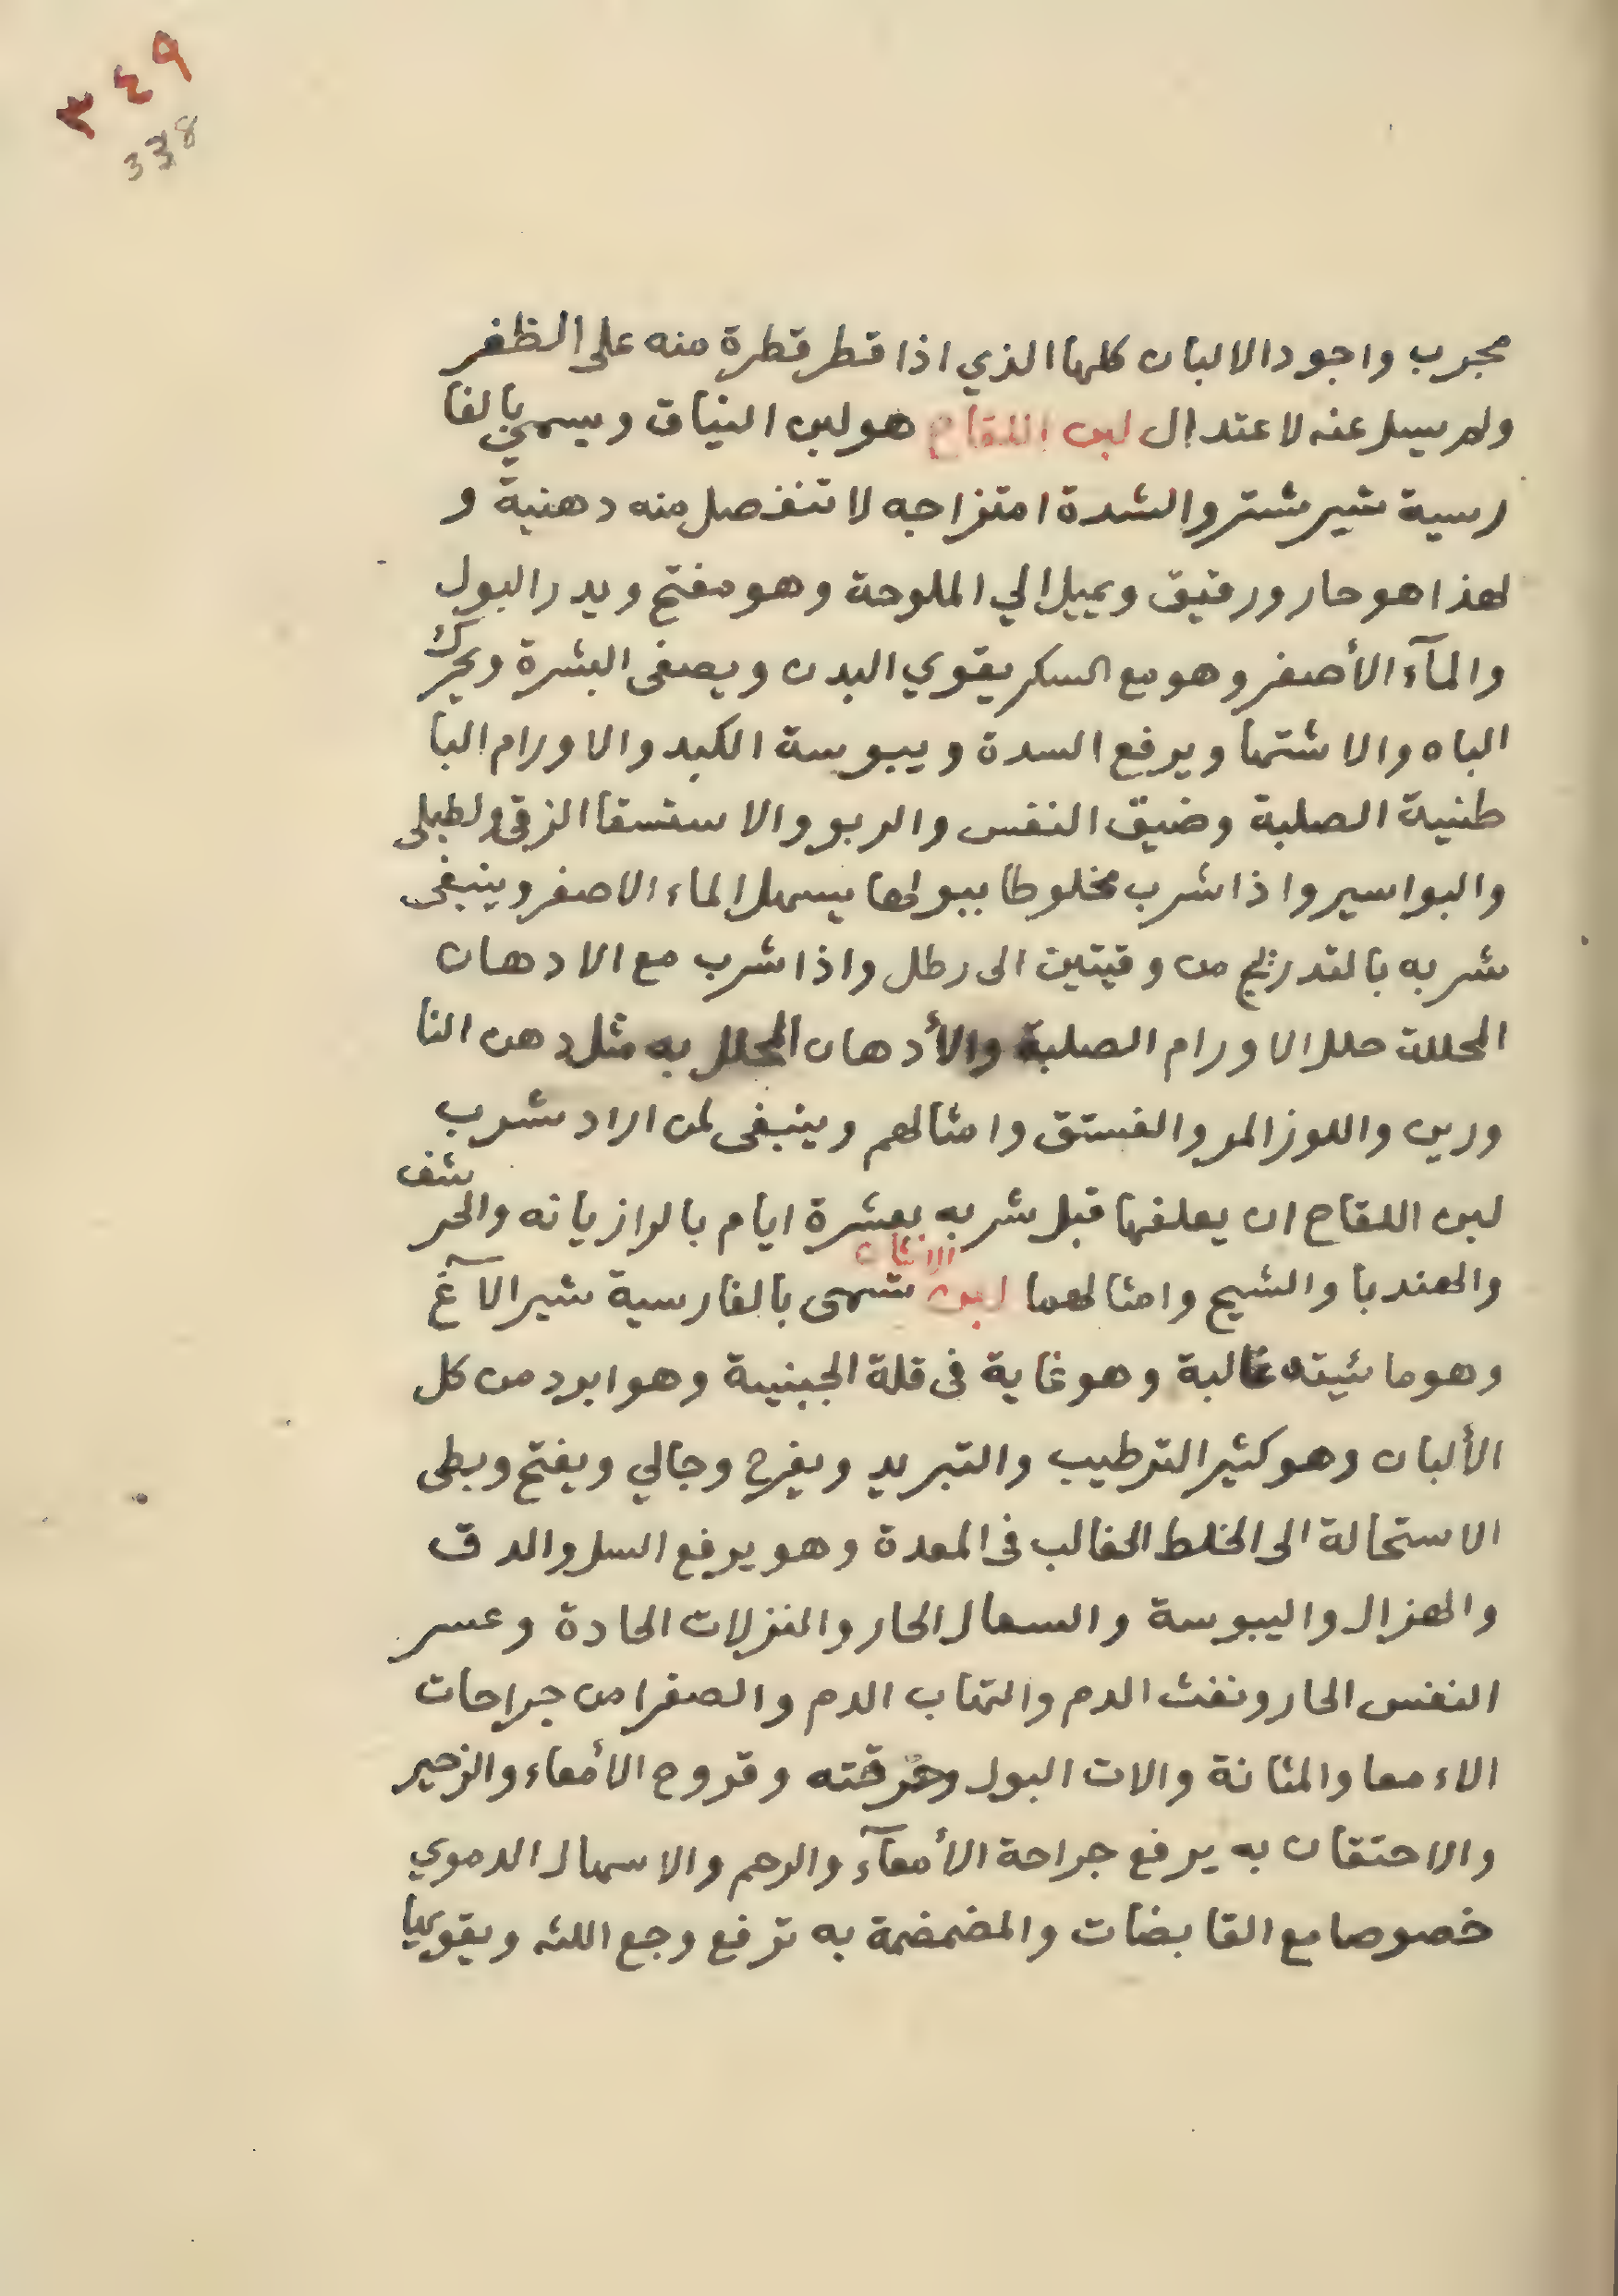 ٣٤٩
338
مجرب واجود الالبان كلها الذي اذا قطر قطرة منه على الظفر
ولم يسل عنه لاعتدال لبن اللقاح هو لبن النياق ويسمي بالفا
رسية شير شتر والشدة امتزاجه لا تنفصل منه دهنية و
لهذا هو حار ورقيق ويميل الي الملوحة وهو مفتح ويدر البول
والمآء الأصفر وهو مع السكر يقوي البدن ويصفى البشرة ويحرك
الباه والاشتها ويرفع السدة ويبوسة الكبد والاورام البا
طنية الصلبة وضيق النفس والربو والاستسقا الزقى ولطبلى
والبواسير واذا شرب مخلوطا ببولها يسهل الماء الاصفر وينبغى
شربه بالتدريج من وقيتين الى رطل واذا شرب مع الادهان
المحللة حلل الاورام الصلبة والأدهان المحلل به مثل دهن النا
ردين واللوز المر والفستق وامثالهم وينبغى لمن اراد شرب
لبن اللقاح ان يعلفها قبل شربه بعشرة ايام بالرازيانه والحرشف
والهندبا والشيح وامثالهما لبن الاتان تسمى بالفارسية شير الآغ
وهو مائيته غالبة وهو غاية فى قلة الجبنية وهو ابرد من كل
الألبان وهو كثير الترطيب والتبريد ويفرح وجالي ويفتح وبطى
الاستحالة الى الخلط الغالب فى المعدة وهو يرفع السل والدق
والهزال واليبوسة والسعال الحار والنزلات الحادة وعسر
النفس الحار ونفث الدم والتهاب الدم والصفرا من جراحات
الاءمعا والمثانة والات البول وحرقته وقروح الأمعاء والزحير
والاحتقان به يرفع جراحة الأمعآء والرحم والاسهال الدموي
خصوصا مع القابضات والمضمضة به ترفع وجع اللثه ويقويها